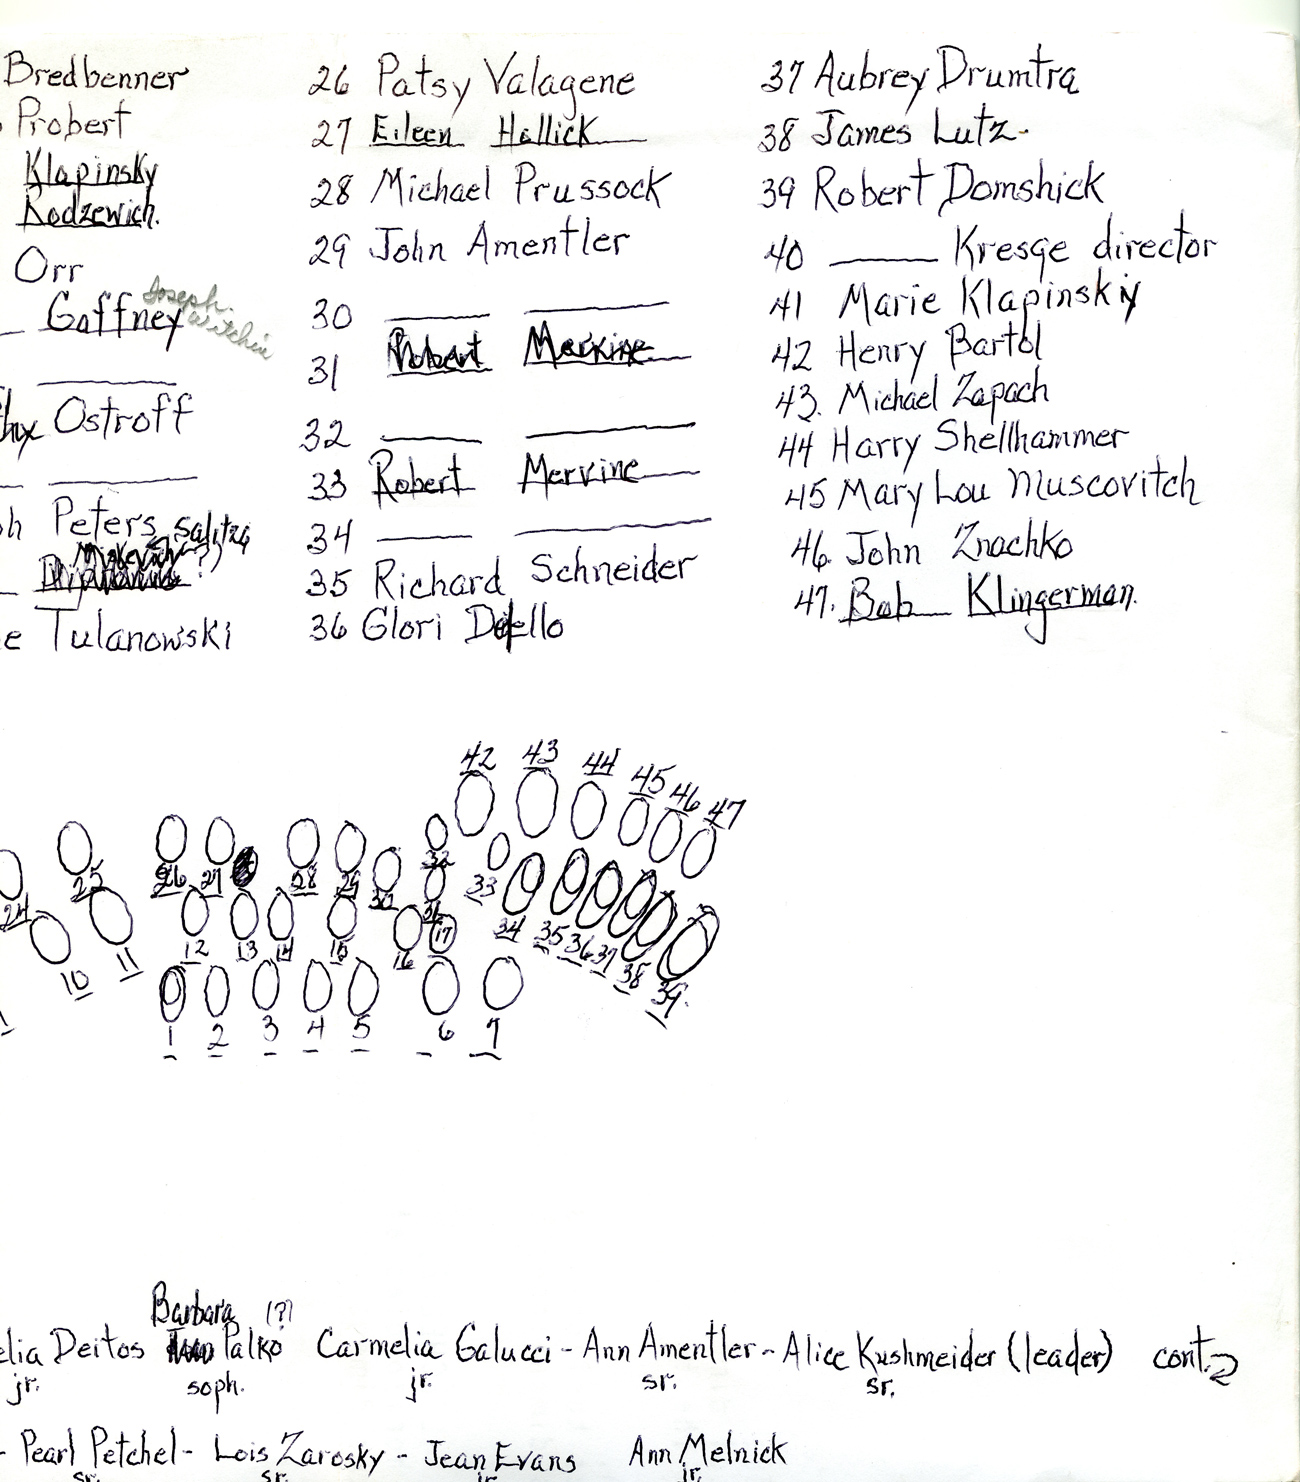 Bredbenner
Probert
Klapinsky
Rodzewich.
Orr
Gaffney Joseph
Ostroff
Peters Salitza
(?)
Tulanowski
26 Patsy Valagene
27 Eileen Hallick
28 Michael Prussock
29 John Amentler
30
31 Robert Mervine
32
33 Robert Mervine
34
35 Richard Schneider
36 Glori
37 Aubrey Drumtra
38 James Lutz
39 Robert Domshick
40 Kresge director
41 Marie Klapinskiy
42 Henry Bartol
43. Michael Zapach
44 Harry Shellhammer
45 Mary Lou Muscovitch
46. John Znachko
47. Bob Klingerman.
42 43 44 45 46 47
24 25 26 27 28 29 30 31 32 33 34 35 36 37 38 39
10 11 12 13 14 15 16 17
1 2 3 4 5 6 7
Barbara (?)
elia Deitos Palko Carmelia Galucci - Ann Amentler - Alice Kushmeider (leader) cont.
jr. soph. jr. sr. sr.
- Pearl Petchel - Lois Zarosky - Jean Evans Ann Melnick
sr. sr. jr. jr.